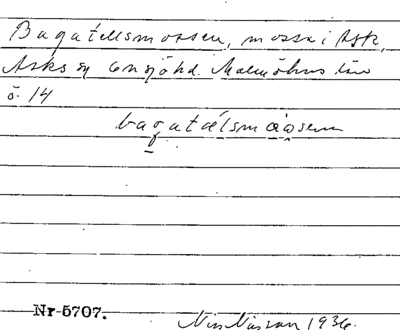 Bagatellsmossen, mosse i Ask,
Asks sn Onsjö hd. Malmöhus län
ö. 14
bagatälsmåosen
Nr 5707.
1936.